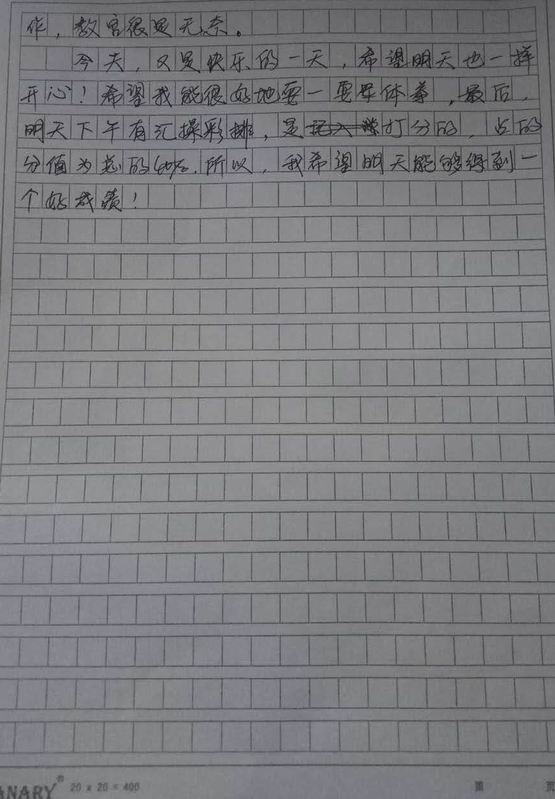 作，教官很是无奈。
今天，又是快乐的一天，希望明天也一样
开心！希望我能很好地耍一耍军体拳，最后，
明天下午有汇操彩排，是打分的，占的
分值为总的40%.所以，我希望明天能够得到一
个好成绩！
ANARY® 20 x 20 = 400 第 页